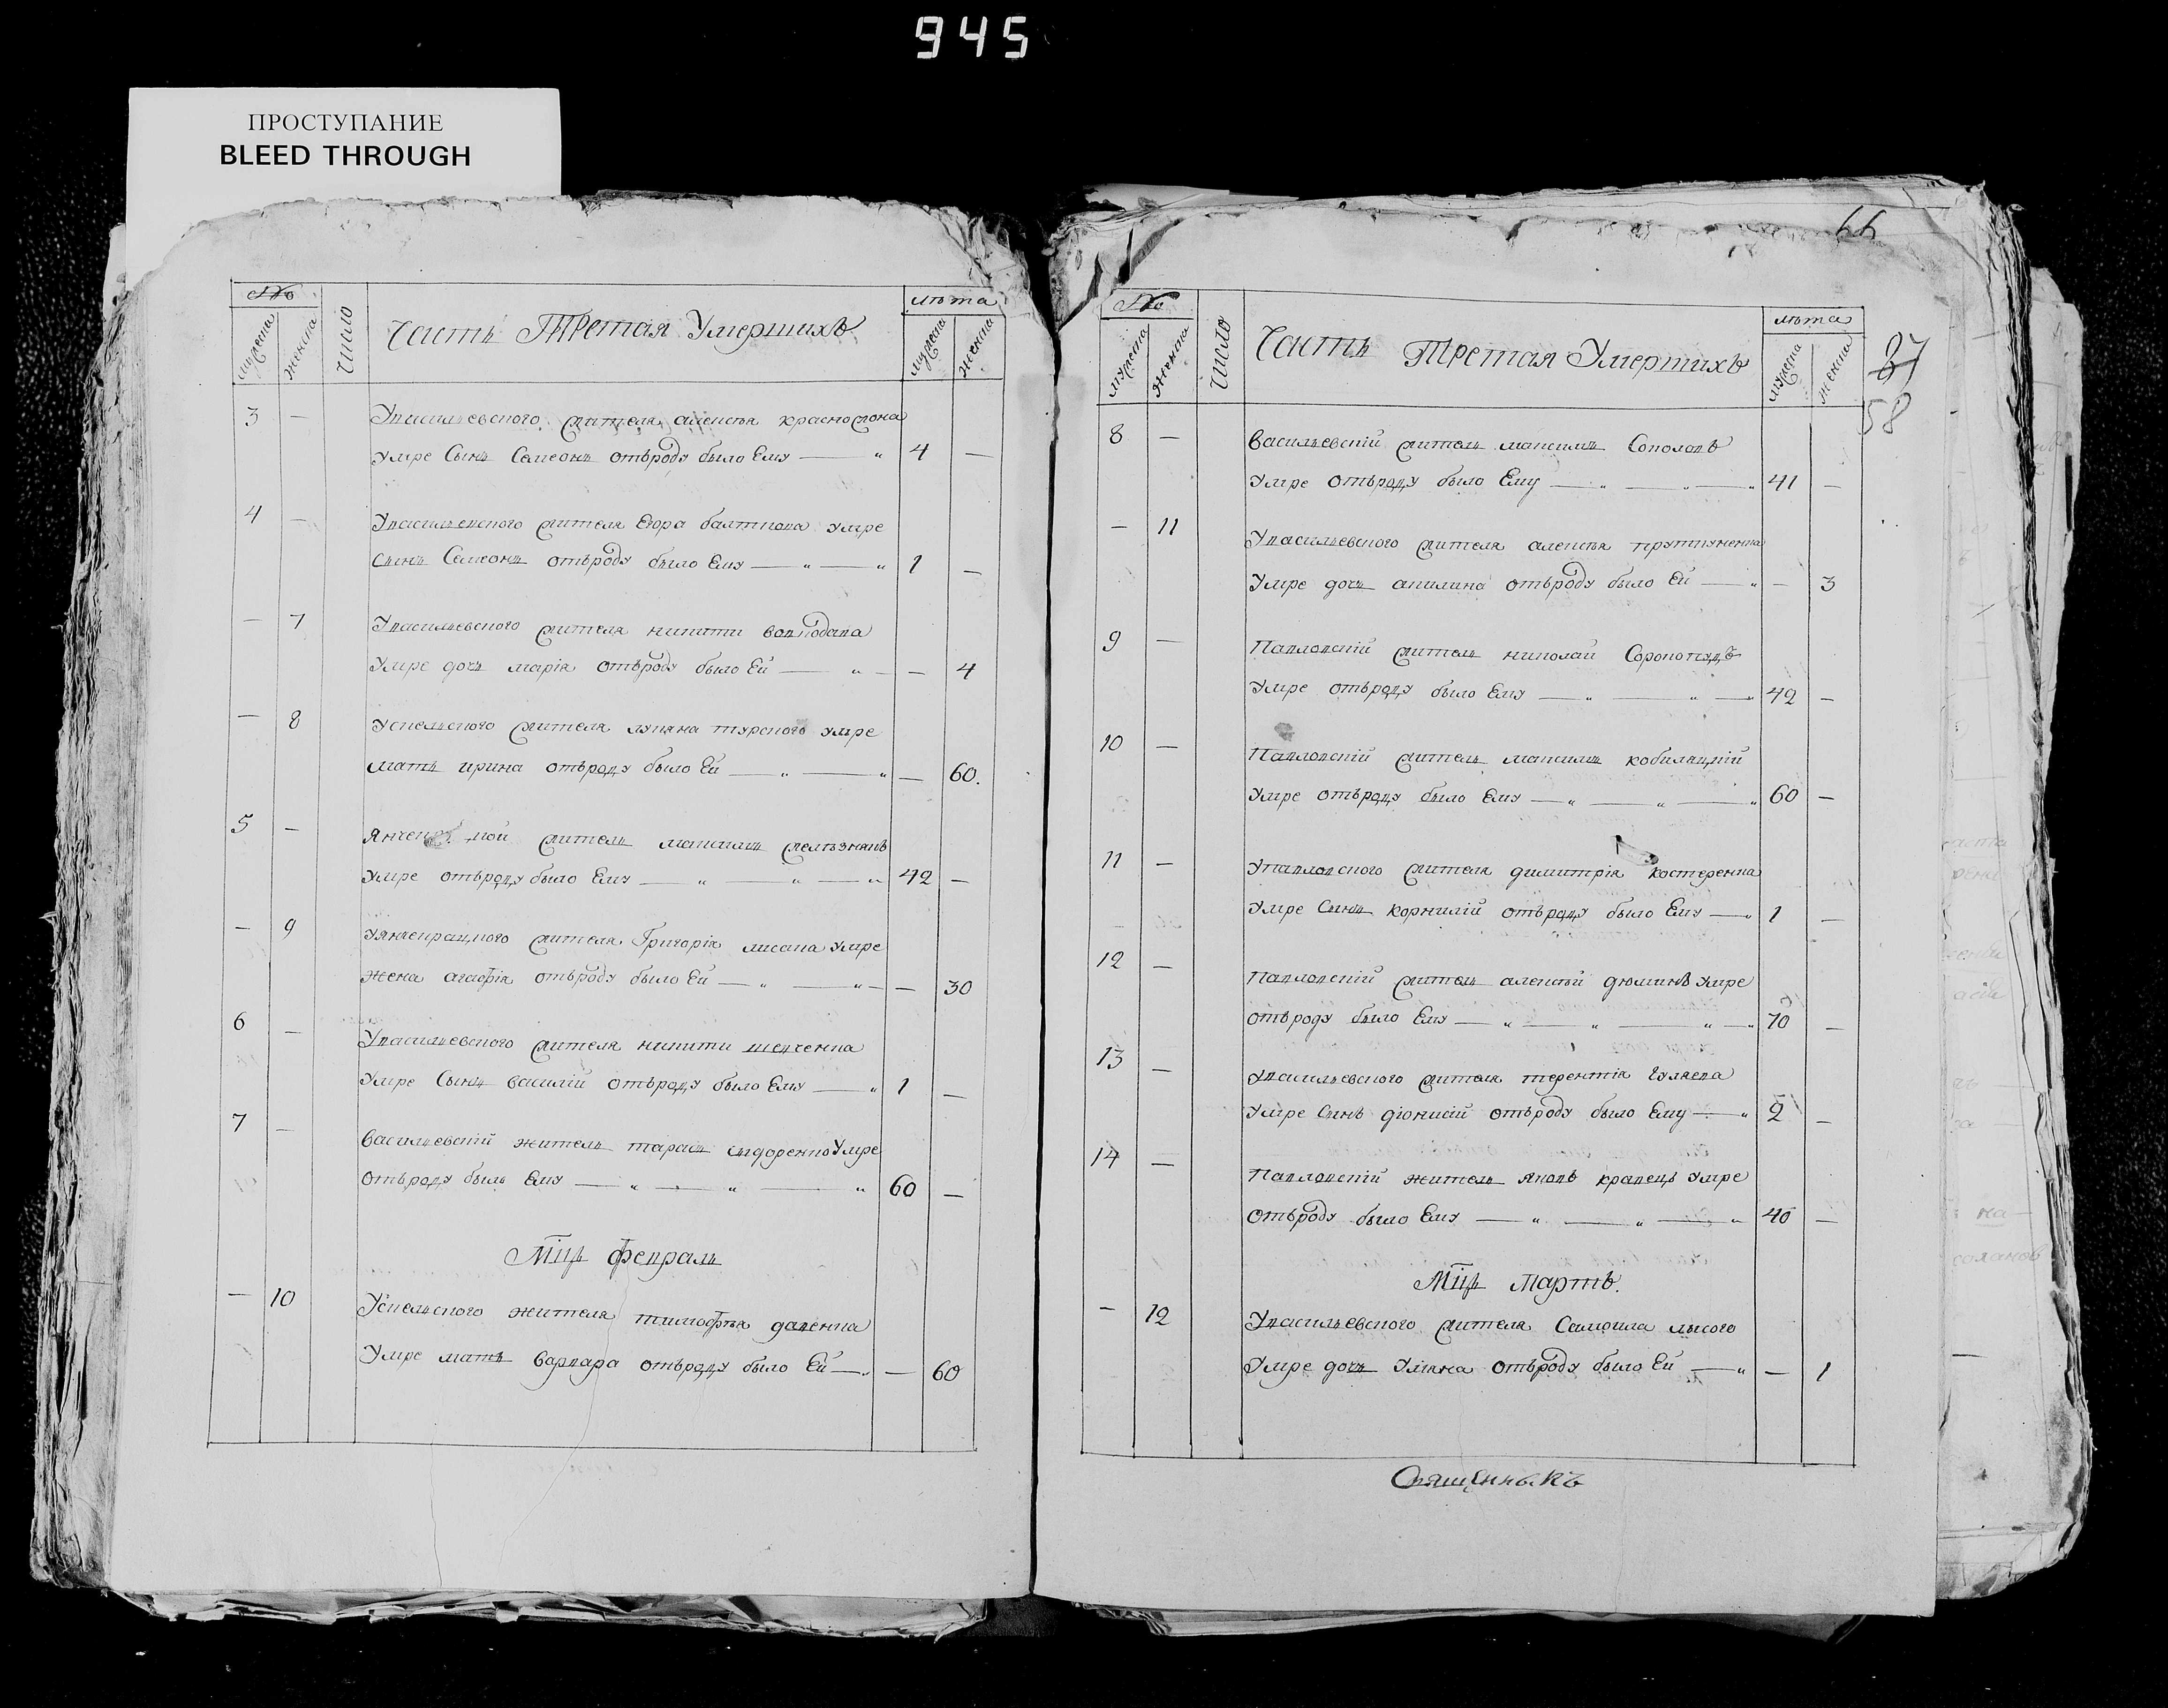 945
ПРОСТУПАНИЕ
BLEED THROUGH
№
мужеска
женска
число
Часть Третая Умершихъ
лѣта
мужеска
женска
3 —
Увасильевского жителя алексѣя краснослова
умре Сынъ Семеонъ отъроду было Ему — " 4 —
4 —
Увасильевского жителя Егора балтиова умре
сынъ Семеонъ отъроду было Ему — " — " 1 —
— 7
Увасильевского жителя никити
Умре дочь марія отъроду было Ей — " — — 4
— 8
Успельского жителя лукяна турского умре
мать ирина отъроду было Ей — " — " — 60.
5 —
житель максимъ
умре отъроду было Ему — " — " — " 42 —
— 9
жителя Григорія лисака умре
жена агафія отъроду было Ей — " — " — — 30
6 —
Увасильевского жителя никити шевченка
Умре Сынъ василій отъроду было Ему — " 1 —
7 —
Васильевскій житель тарасъ сидоренко Умре
отъроду быль Ему — " — " — " 60 —
Мцъ февраль
— 10
жителя тимофѣя
Умре мать варвара отъроду было Ей — — 60
66
№
мужеска
женска
число
Часть Третая Умершихъ
лѣта
мужеска
женска
37
58
8 —
Васильевскій житель максимъ Соколовъ
Умре отъроду было Ему — " — " — " 41 —
— 11
Увасильевского жителя алексѣя
Умре дочь акилина отъроду было Ей — " — 3
9 —
Павловскій житель николай Сорокопудъ
Умре отъроду было Ему — " — " — " 42 —
10 —
Павловскій житель максимъ кобиляцкій
Умре отъроду было Ему — " — " — " 60 —
11 —
Упавловского жителя димитрія костеренка
Умре Сынъ корнилій отъроду было Ему — " 1 —
12 —
Павловскій житель алексѣй дюминъ умре
отъроду было Ему — " — " — " — " 70 —
13 —
Увасильевского жителя терентія гуляева
Умре Синъ діонисій отъроду было Ему — " 2 —
14 —
Павловскій житель яковъ кравецъ умре
отъроду было Ему — " — " — " 40 —
Мцъ Мартъ.
— 12
Увасильевского жителя Самоила лисого
Умре дочь Уляна отъроду было Ей — " — 1
Священникъ